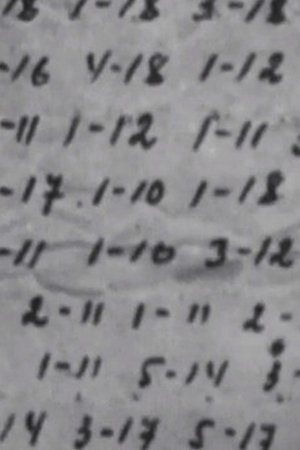 18 1-18 3-18
-16 4-18 1-12
-11 1-12 1-11
-17 1-10 1-18
-11 1-10 3-12
2-11 1-11 2-
1-11 5-14 3-
14 3-17 5-17